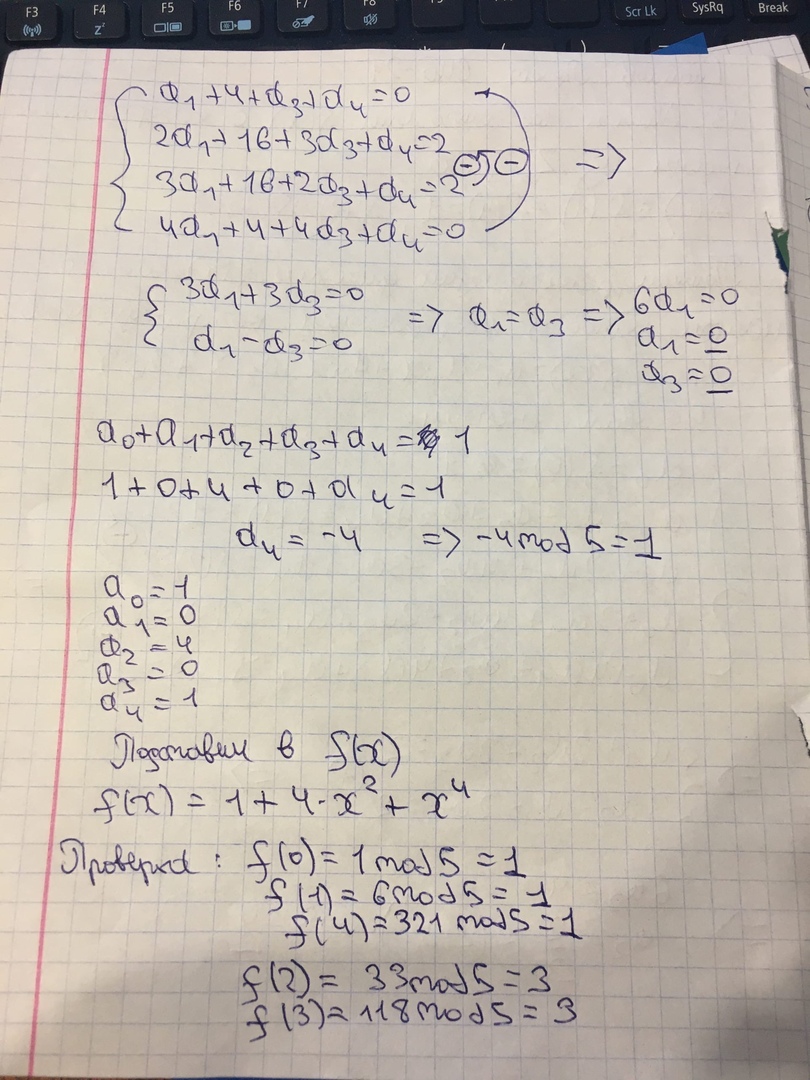 F3 F4 F5 F6 F7 F8 Scr Lk SysRq Break
a₁+4+a₃+a₄=0
2a₁+16+3a₃+a₄=2
3a₁+16+2a₃+a₄=2
4a₁+4+4a₃+a₄=0
=>
3a₁+3a₃=0
a₁-a₃=0
=> a₁=a₃ => 6a₁=0
a₁=0
a₃=0
a₀+a₁+a₂+a₃+a₄= 1
1+0+4+0+a₄=1
a₄=-4 => -4 mod 5=1
a₀=1
a₁=0
a₂=4
a₃=0
a₄=1
Подставим в f(x)
f(x)=1+4·x²+x⁴
Проверка: f(0)=1 mod 5=1
f(1)=6 mod 5=1
f(4)=321 mod 5=1
f(2)= 33 mod 5=3
f(3)=118 mod 5=3